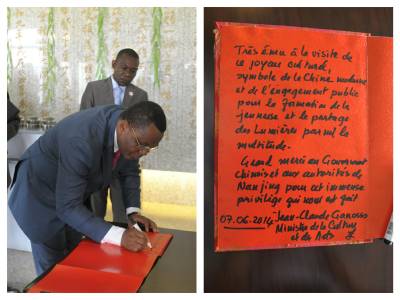 Très ému à la visite de
ce joyau culturel,
symbole de la Chine moderne
et de l'engagement public
pour la formation de la
jeunesse et le partage
des Lumières par la
multitude.
Grand merci au Gouvernement
chinois et aux autorités de
Nanjing pour cet immense
privilège qui nous est fait
07.06.2014 Jean-Claude Gakosso
Ministre de la Culture
et des Arts